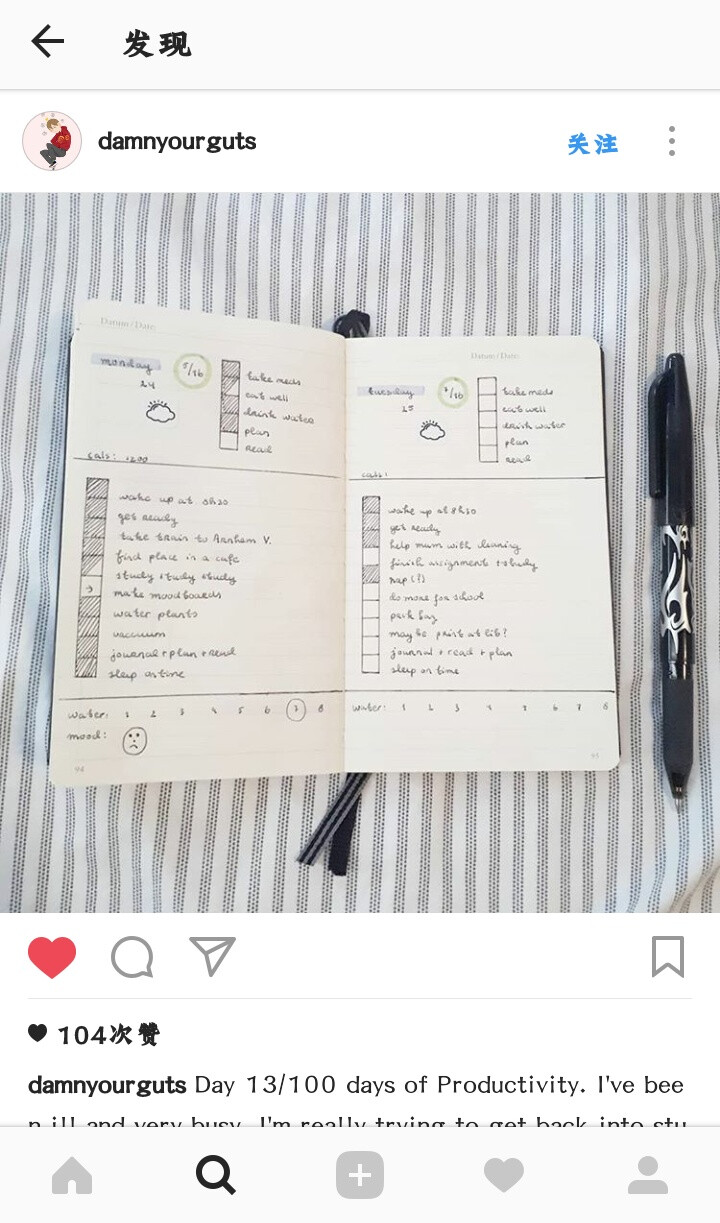 发现
damnyourguts
关注
Datum/Date:
monday
24
take meds
eat well
drink water
plan
read
cals: 1200
wake up at 8h20
get ready
take train to Arnhem V.
find place in a cafe
study study study
make moodboards
water plants
vacuum
journal + plan + read
sleep on time
water: 1 2 3 4 5 6 7 8
mood:
94
Datum/Date:
tuesday
25
take meds
eat well
drink water
plan
read
cals:
wake up at 8h30
get ready
help mum with cleaning
finish assignment + study
nap (!)
do more for school
pack bag
maybe print at lib?
journal + read + plan
sleep on time
water: 1 2 3 4 5 6 7 8
95
104次赞
damnyourguts Day 13/100 days of Productivity. I've bee
n ill and very busy. I'm really trying to get back into stu